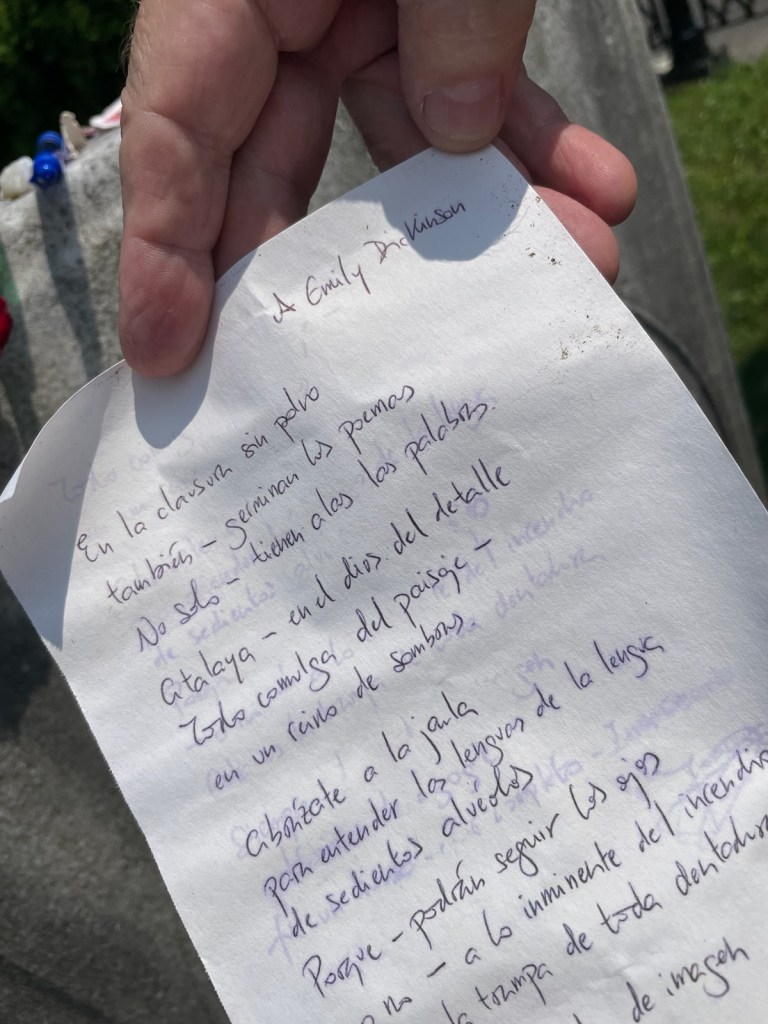 A Emily Dickinson
En la clausura sin polvo
también – germinan los poemas
No solo – tienen alas las palabras.
Atalaya – en el dios del detalle
Todo comulga del paisaje –
en un reino de sombras
Abrázate a la jaula
para entender las lenguas de la lengua
de sedientos alvéolos
Porque – podrán seguir los ojos
o no – a lo inminente del incendio
la trampa de toda dentadura
de imagen